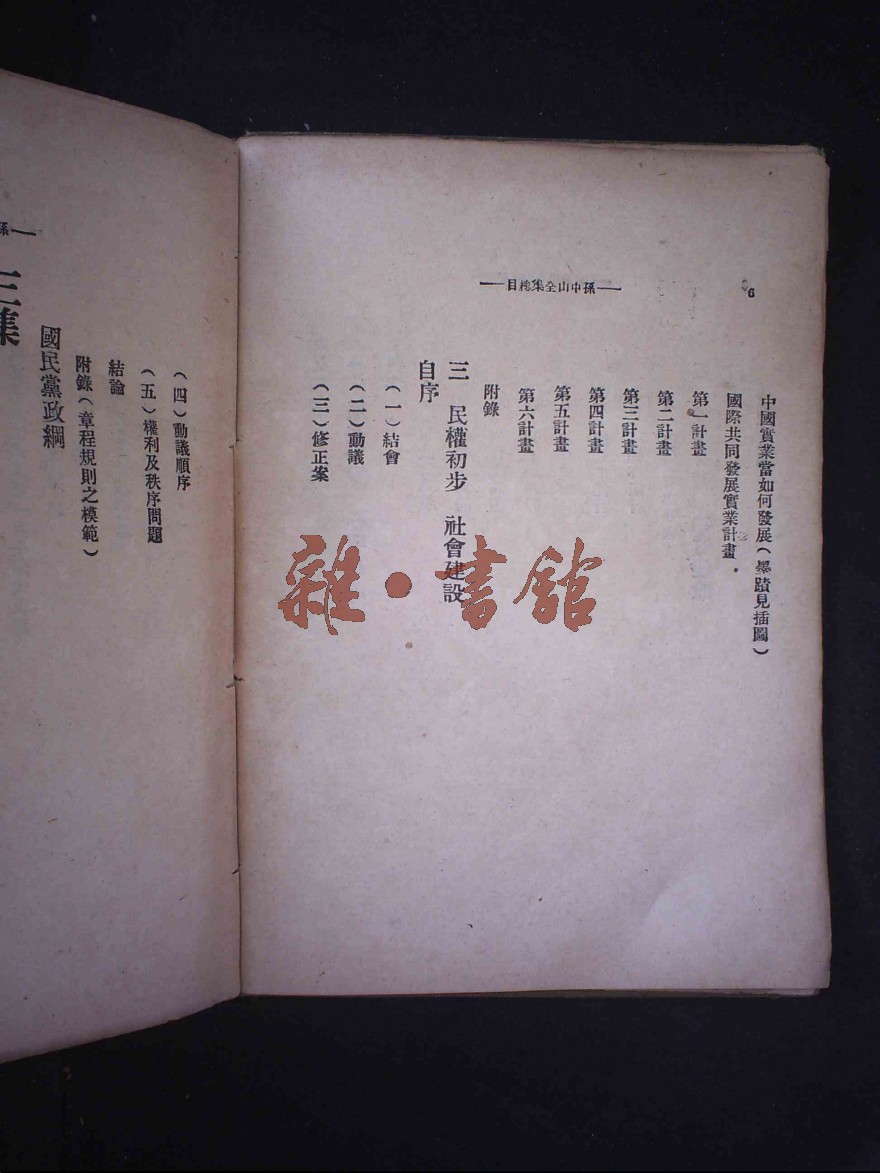 6
孫中山全集總目
中國實業當如何發展（墨蹟見插圖）
國際共同發展實業計畫．
第一計畫
第二計畫
第三計畫
第四計畫
第五計畫
第六計畫
附錄
三　民權初步　社會建設
自序
（一）結會
（二）動議
（三）修正案
（四）動議順序
（五）權利及秩序問題
結論
附錄（章程規則之模範）
國民黨政綱
三集
孫
雜·書館